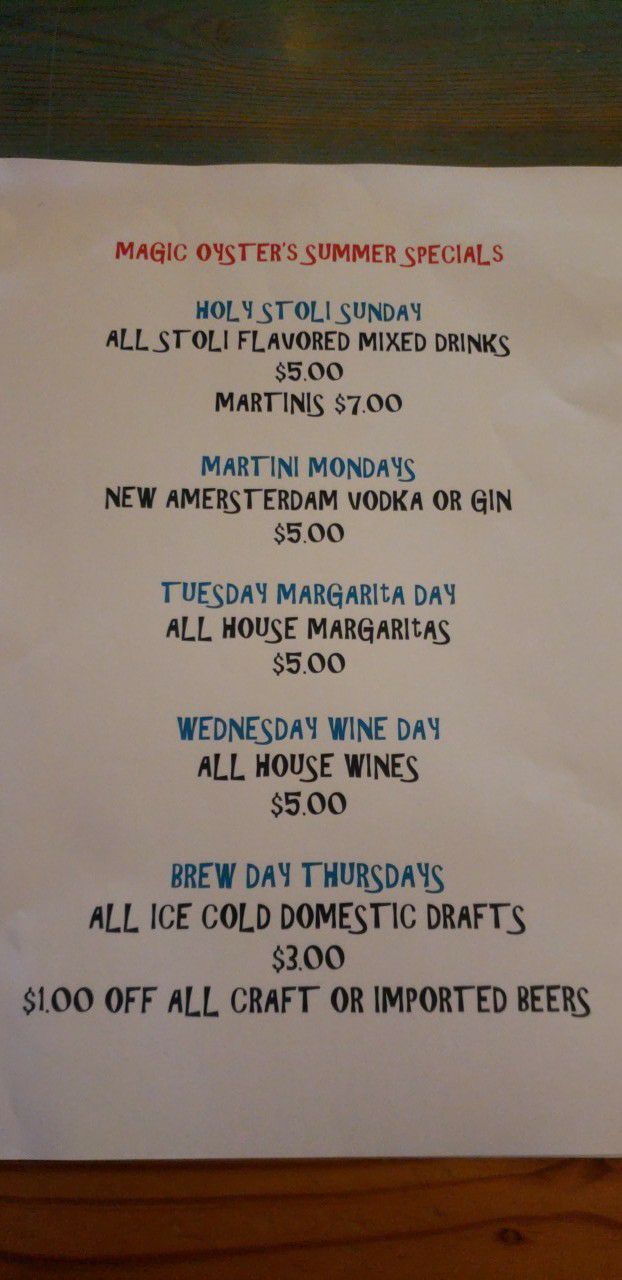 MAGIC OYSTER'S SUMMER SPECIALS
HOLY STOLI SUNDAY
ALL STOLI FLAVORED MIXED DRINKS
$5.00
MARTINIS $7.00
MARTINI MONDAYS
NEW AMERSTERDAM VODKA OR GIN
$5.00
TUESDAY MARGARItA DAY
ALL HOUSE MARGARItAS
$5.00
WEDNESDAY WINE DAY
ALL HOUSE WINES
$5.00
BREW DAY THURSDAYS
ALL ICE COLD DOMESTIC DRAFTS
$3.00
$1.00 OFF ALL CRAFT OR IMPORTED BEERS